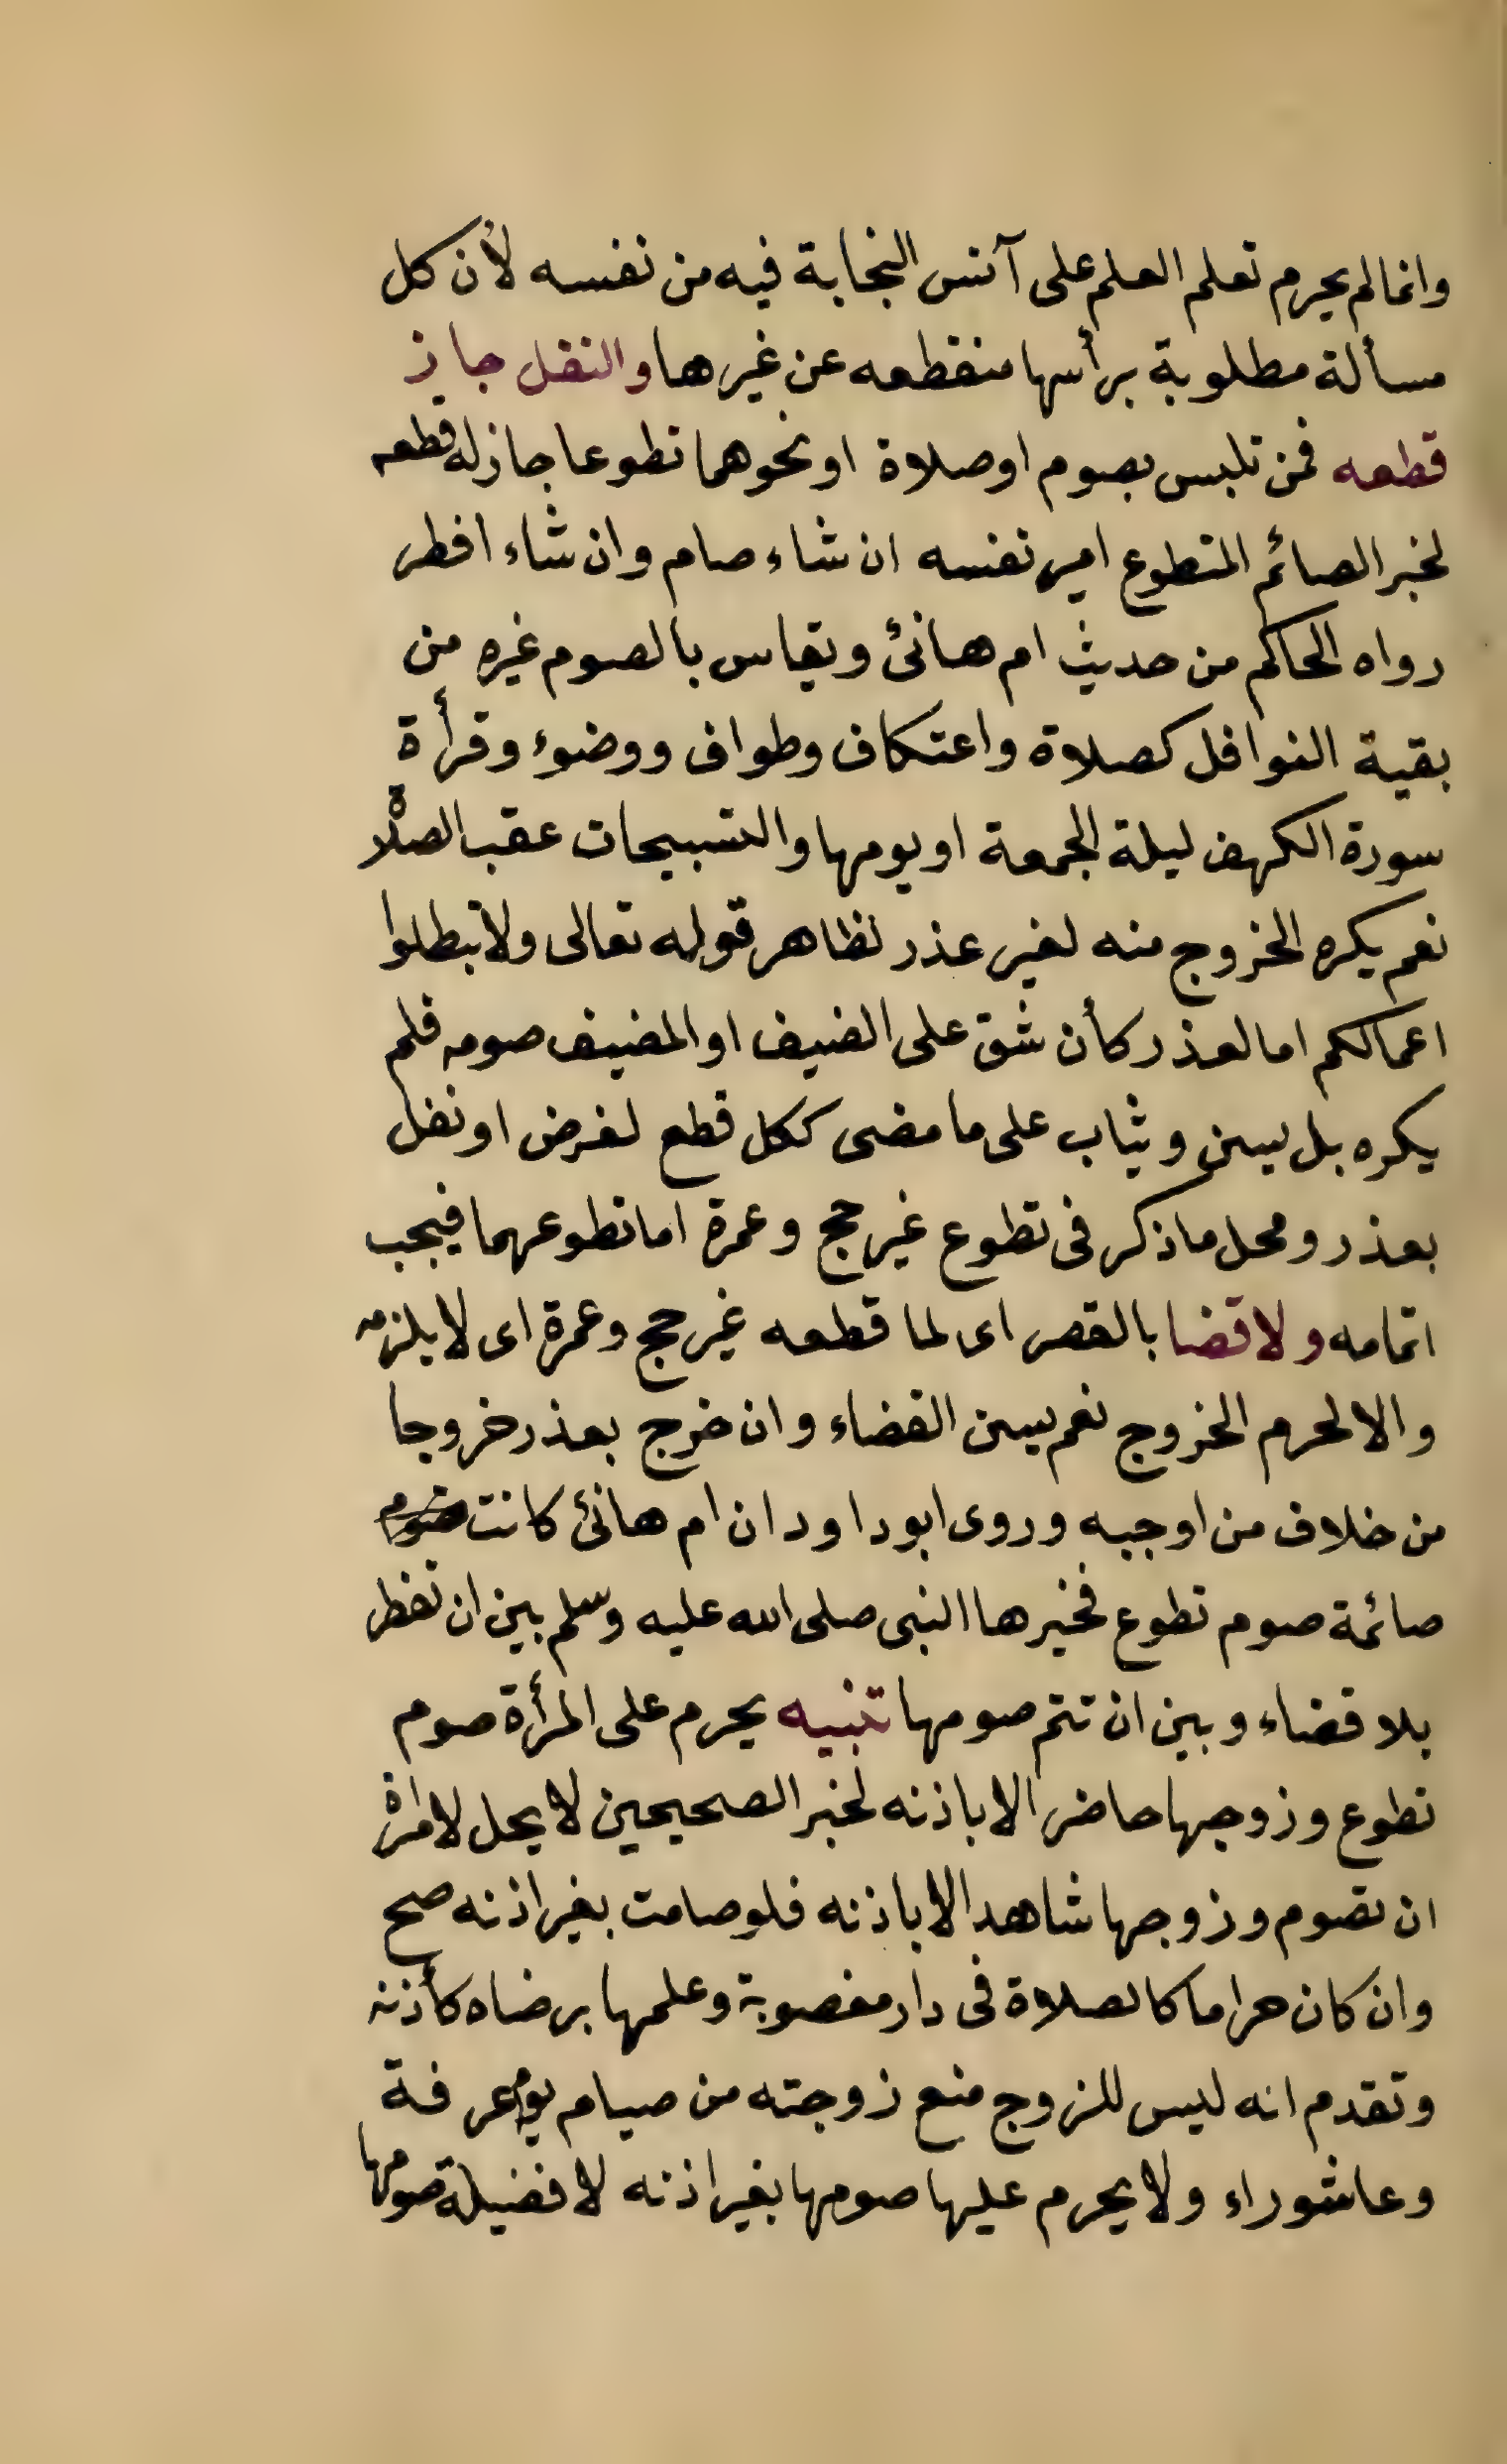 وانما لم يحرم تعلم العلم على آنس النجابة فيه من نفسه لأن كل
مسألة مطلوبة برأسها منقطعه عن غيرها والنفل جاز
قطعه فمن تلبس بصوم او صلاة او نحوهما تطوعا جاز له قطعه
لخبر الصائم المتطوع امير نفسه ان شاء صام وان شاء افطر
رواه الحاكم من حديث ام هانئ ويقاس بالصوم غيره من
بقية النوافل كصلاة واعتكاف وطواف ووضوء وقرأة
سورة الكهف ليلة الجمعة او يومها والتسبيحات عقب الصلاة
نعم يكره الخروج منه لغير عذر لظاهر قوله تعالى ولا تبطلوا
اعمالكم اما لعذر كأن شق على الضيف او المضيف صومه فلم
يكره بل يسن ويثاب على ما مضى ككل قطع لفرض او نفل
بعذر ومحل ما ذكر فى تطوع غير حج وعمرة اما تطوعهما فيجب
اتمامه ولا قضا بالقصر اى لما قطعه غير حج وعمرة اى لا يلزمه
والا لحرم الخروج نعم يسن القضاء وان خرج بعذر خروجا
من خلاف من اوجبه وروى ابو داود ان ام هانئ كانت
صائمة صوم تطوع فخيرها النبى صلى الله عليه وسلم بين ان تفطر
بلا قضاء وبين ان تتم صومها تنبيه يحرم على المرأة صوم
تطوع وزوجها حاضر الا باذنه لخبر الصحيحين لا يحل لامرأة
ان تصوم وزوجها شاهد الا باذنه فلو صامت بغير اذنه صح
وان كان حراما كالصلاة فى دار مغصوبة وعلمها برضاه كأذنه
وتقدم انه ليس للزوج منع زوجته من صيام يوم عرفة
وعاشوراء ولا يحرم عليها صومها بغير اذنه لا فضيلة صومها